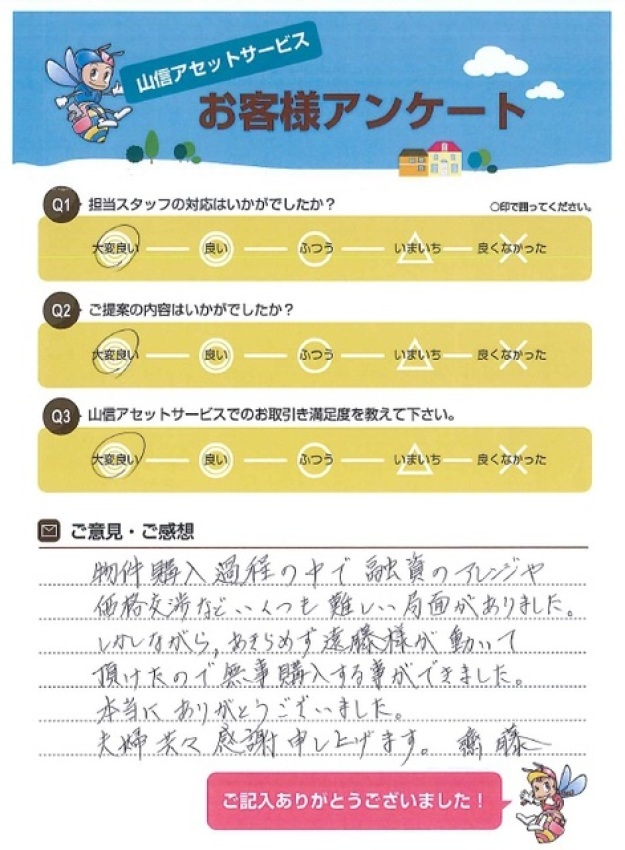 山信アセットサービス
お客様アンケート
Q1 担当スタッフの対応はいかがでしたか？ ○印で囲ってください。
大変良い 良い ふつう いまいち 良くなかった
Q2 ご提案の内容はいかがでしたか？
大変良い 良い ふつう いまいち 良くなかった
Q3 山信アセットサービスでのお取引き満足度を教えて下さい。
大変良い 良い ふつう いまいち 良くなかった
ご意見・ご感想
物件購入過程の中で融資のアレンジや
価格交渉など、いくつも難しい局面がありました。
しかしながら、あきらめず遠藤様が動いて
頂けたので無事購入する事ができました。
本当にありがとうございました。
夫婦共々感謝申し上げます。齋藤
ご記入ありがとうございました！